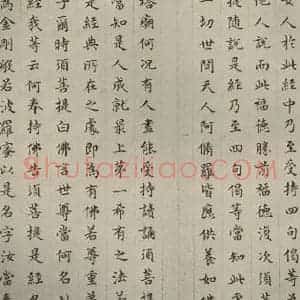 女人於此經中乃至受持四句偈等
他人說而此福德勝前福德復次須菩
提隨說是經乃至四句偈等當知此
一切世間天人阿脩羅皆應供養如
塔廟何況有人盡能受持讀誦須菩
當知是人成就最上第一希有之法若
是經典所在之處即為有佛若尊重
子爾時須菩提白佛言世尊當何名
經我等云何奉持佛告須菩提是經
為金剛般若波羅蜜以是名字汝當
Shufaziliao.com